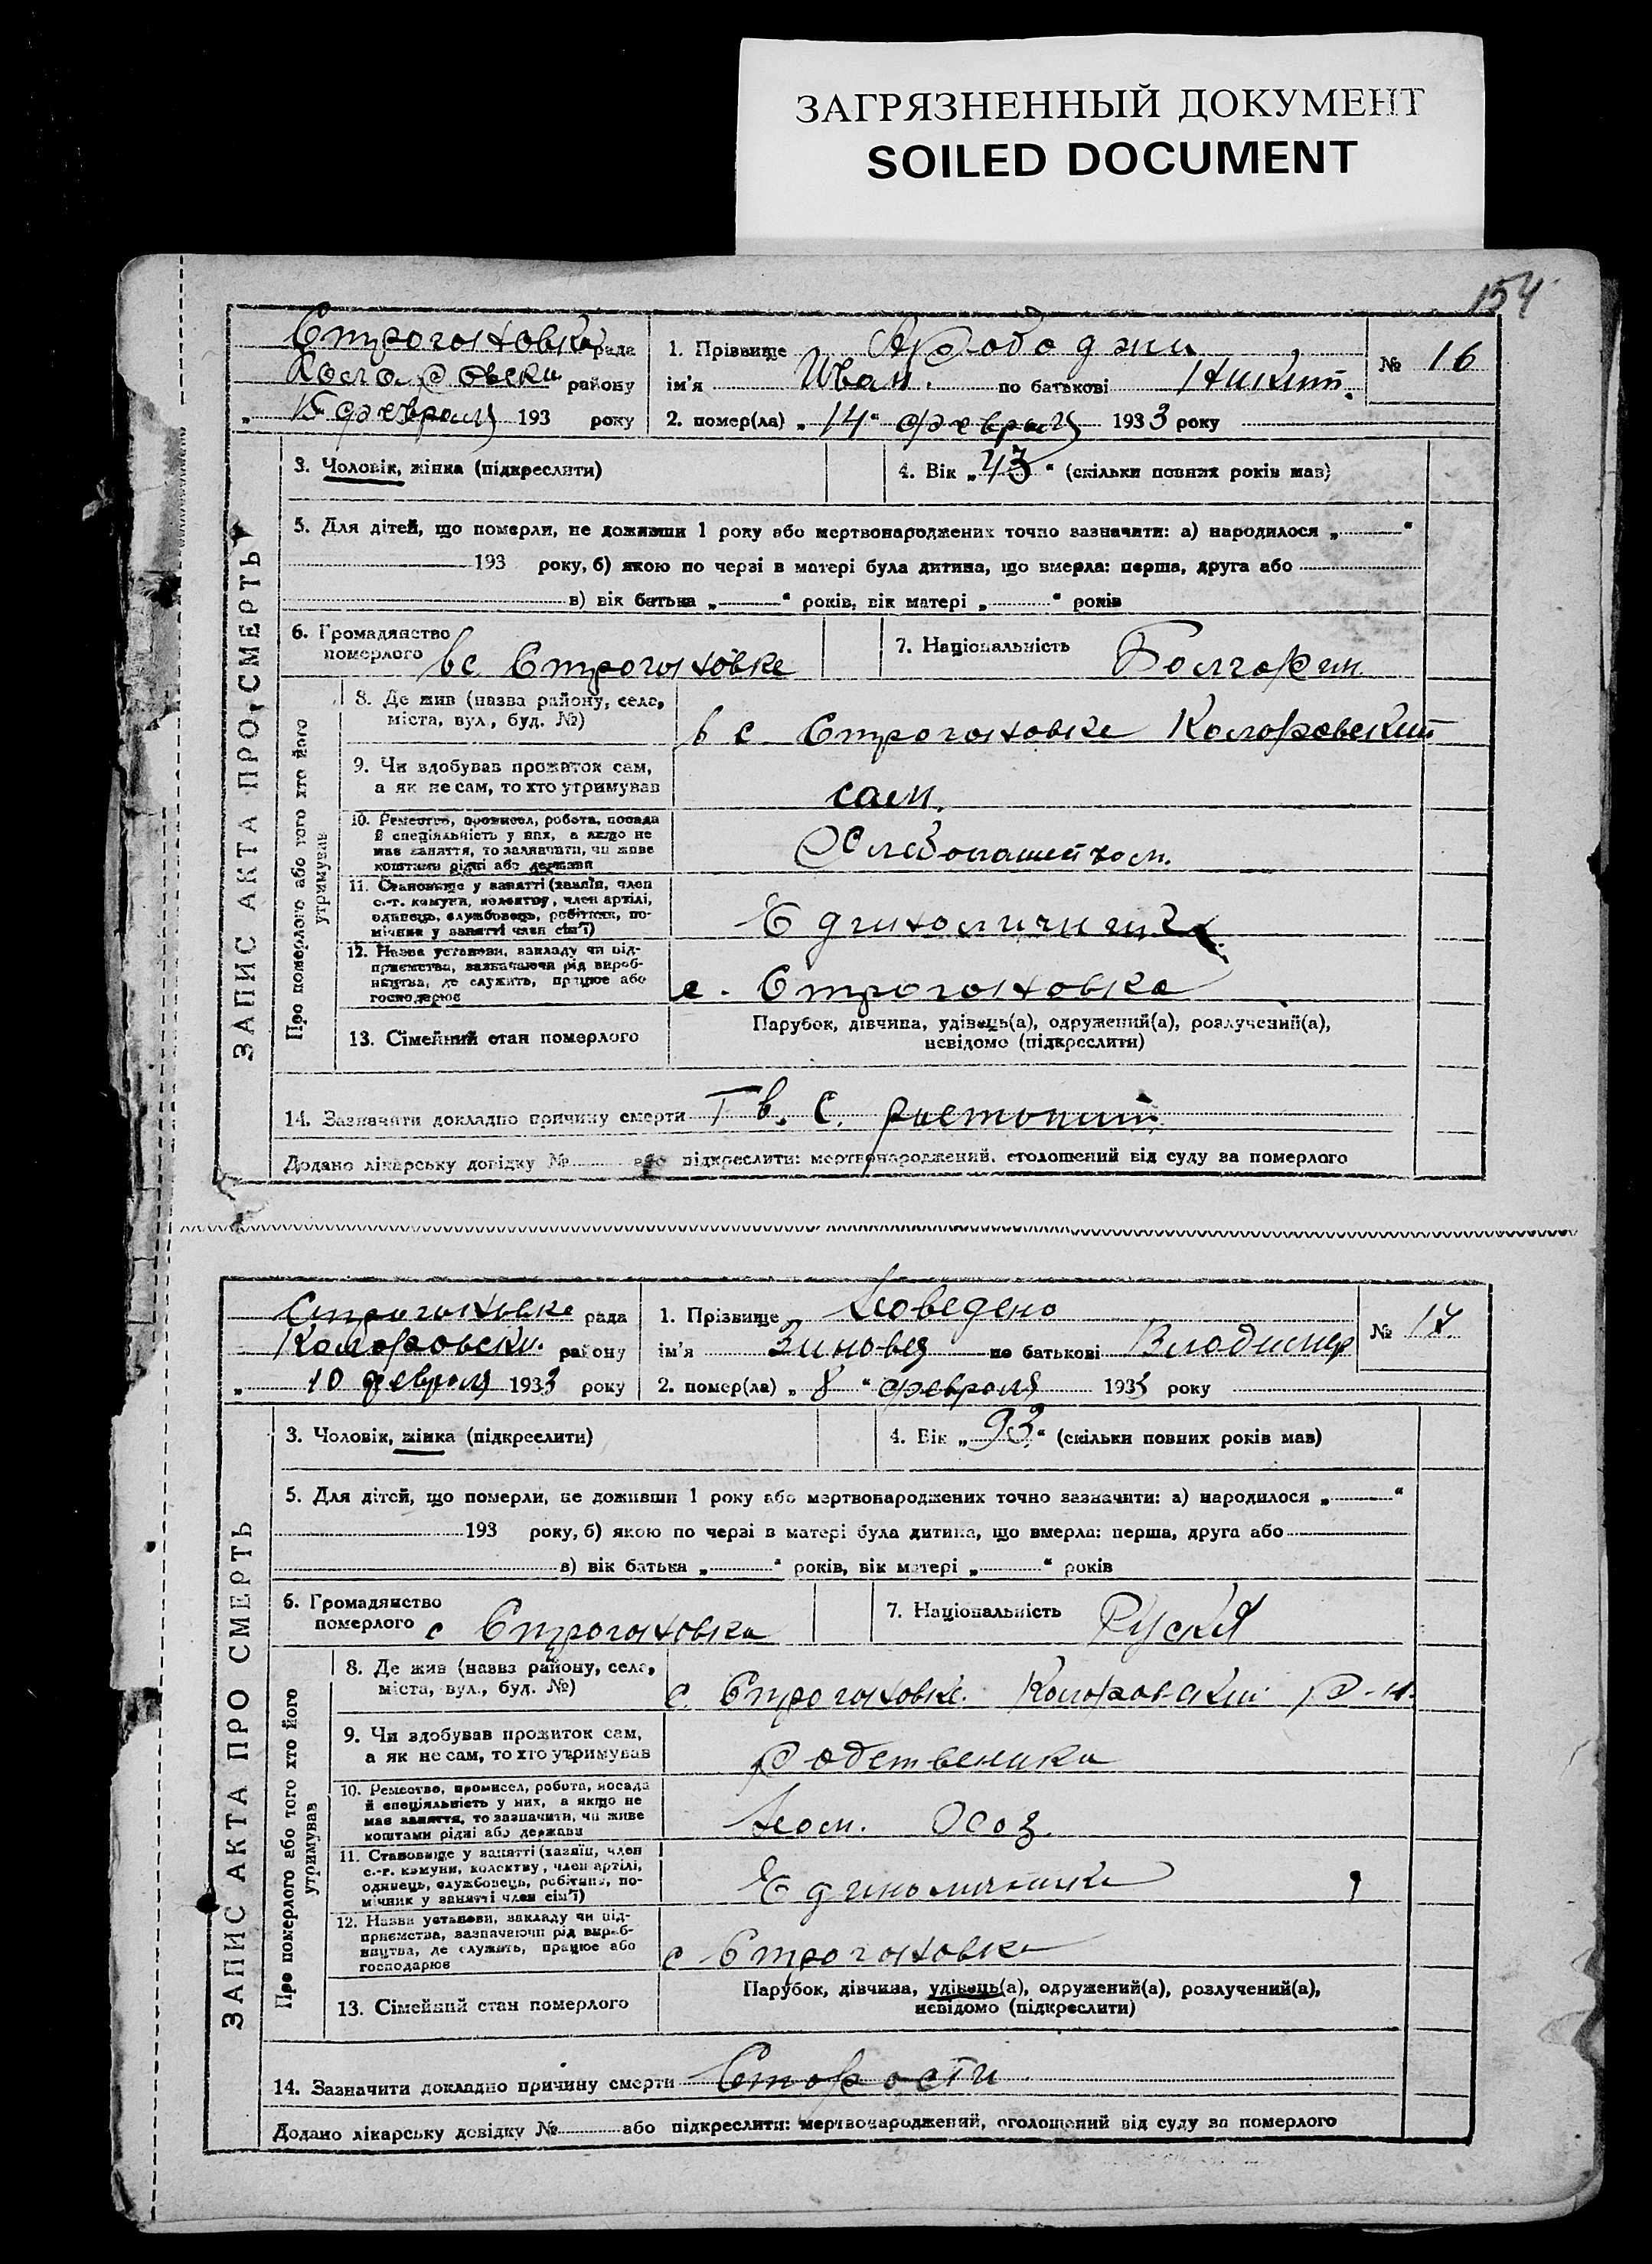 ЗАГРЯЗНЕННЫЙ ДОКУМЕНТ
SOILED DOCUMENT
154
Строгоновка рада
району
15 февраля 193 року
1. Прізвище Арабаджи
ім'я Иван. по батькові Никит.
2. помер(ла) „14“ февраля 1933 року
№ 16
3. Чоловік, жінка (підкреслити)
4. Вік „43“ (скільки повних років мав)
5. Для дітей, що померли, не доживши 1 року або мертвонароджених точно зазначити: а) народилося „ “
193 року, б) якою по черзі в матері була дитина, що вмерла: перша, друга або
в) вік батька „ “ років, вік матері „ “ років
6. Громадянство
померлого вс Строгоновке
7. Національність Болгарин
ЗАПИС АКТА ПРО СМЕРТЬ
Про померлого або того хто його
утримував
8. Де жив (назва району, села,
міста, вул., буд. №)
в с Строгоновке Коларовский
9. Чи здобував прожиток сам,
а як не сам, то хто утримував
сам.
10. Ремество, промисел, робота, посада
й спеціяльність у них, а якщо не
має заняття, то зазначити, чи живе
коштами рідні або держави
11. Становище у занятті (хазяїн, член
с.-г. комуни, колектиу, член артілі,
одинець, службовець, робітник, по-
мічник у занятті член сім'ї)
12. Назва установи, закладу чи під-
приємства, зазначаючи рід вироб-
ництва, де служить, працює або
господарює
с. Строгоновка
13. Сімейний стан померлого
Парубок, дівчина, удівець(а), одружений(а), розлучений(а),
невідомо (підкреслити)
14. Зазначити докладно причину смерти
Додано лікарську довідку № або підкреслити: мертвонароджений, оголошений від суду за померлого
Строгоновке рада
Коларовски. району
„ 10 февраля 1933 року
1. Прізвище
ім'я Зиновея по батькові Владимир
2. помер(ла) „ 8 “ февраля 1933 року
№ 17
3. Чоловік, жінка (підкреслити)
4. Вік „93“ (скільки повних років мав)
5. Для дітей, що померли, не доживши 1 року або мертвонароджених точно зазначити: а) народилося „ “
193 року, б) якою по черзі в матері була дитина, що вмерла: перша, друга або
в) вік батька „ “ років, вік матері „ “ років
6. Громадянство
померлого с Строгоновка
7. Національність Руская
ЗАПИС АКТА ПРО СМЕРТЬ
Про померлого або того хто його
утримував
8. Де жив (назва району, села,
міста, вул., буд. №)
с. Строгоновке. Коларовский р-н.
9. Чи здобував прожиток сам,
а як не сам, то хто утримував
родственики
10. Ремество, промисел, робота, посада
й спеціяльність у них, а якщо не
має заняття, то зазначити, чи живе
коштами рідні або держави
11. Становище у занятті (хазяїн, член
с.-г. комуни, колектиу, член артілі,
одинець, службовець, робітник, по-
мічник у занятті член сім'ї)
Единоличники
12. Назва установи, закладу чи під-
приємства, зазначаючи рід вироб-
ництва, де служить, працює або
господарює
с Строгоновка
13. Сімейний стан померлого
Парубок, дівчина, удівець(а), одружений(а), розлучений(а),
невідомо (підкреслити)
14. Зазначити докладно причину смерти Старости
Додано лікарську довідку № або підкреслити: мертвонароджений, оголошений від суду за померлого